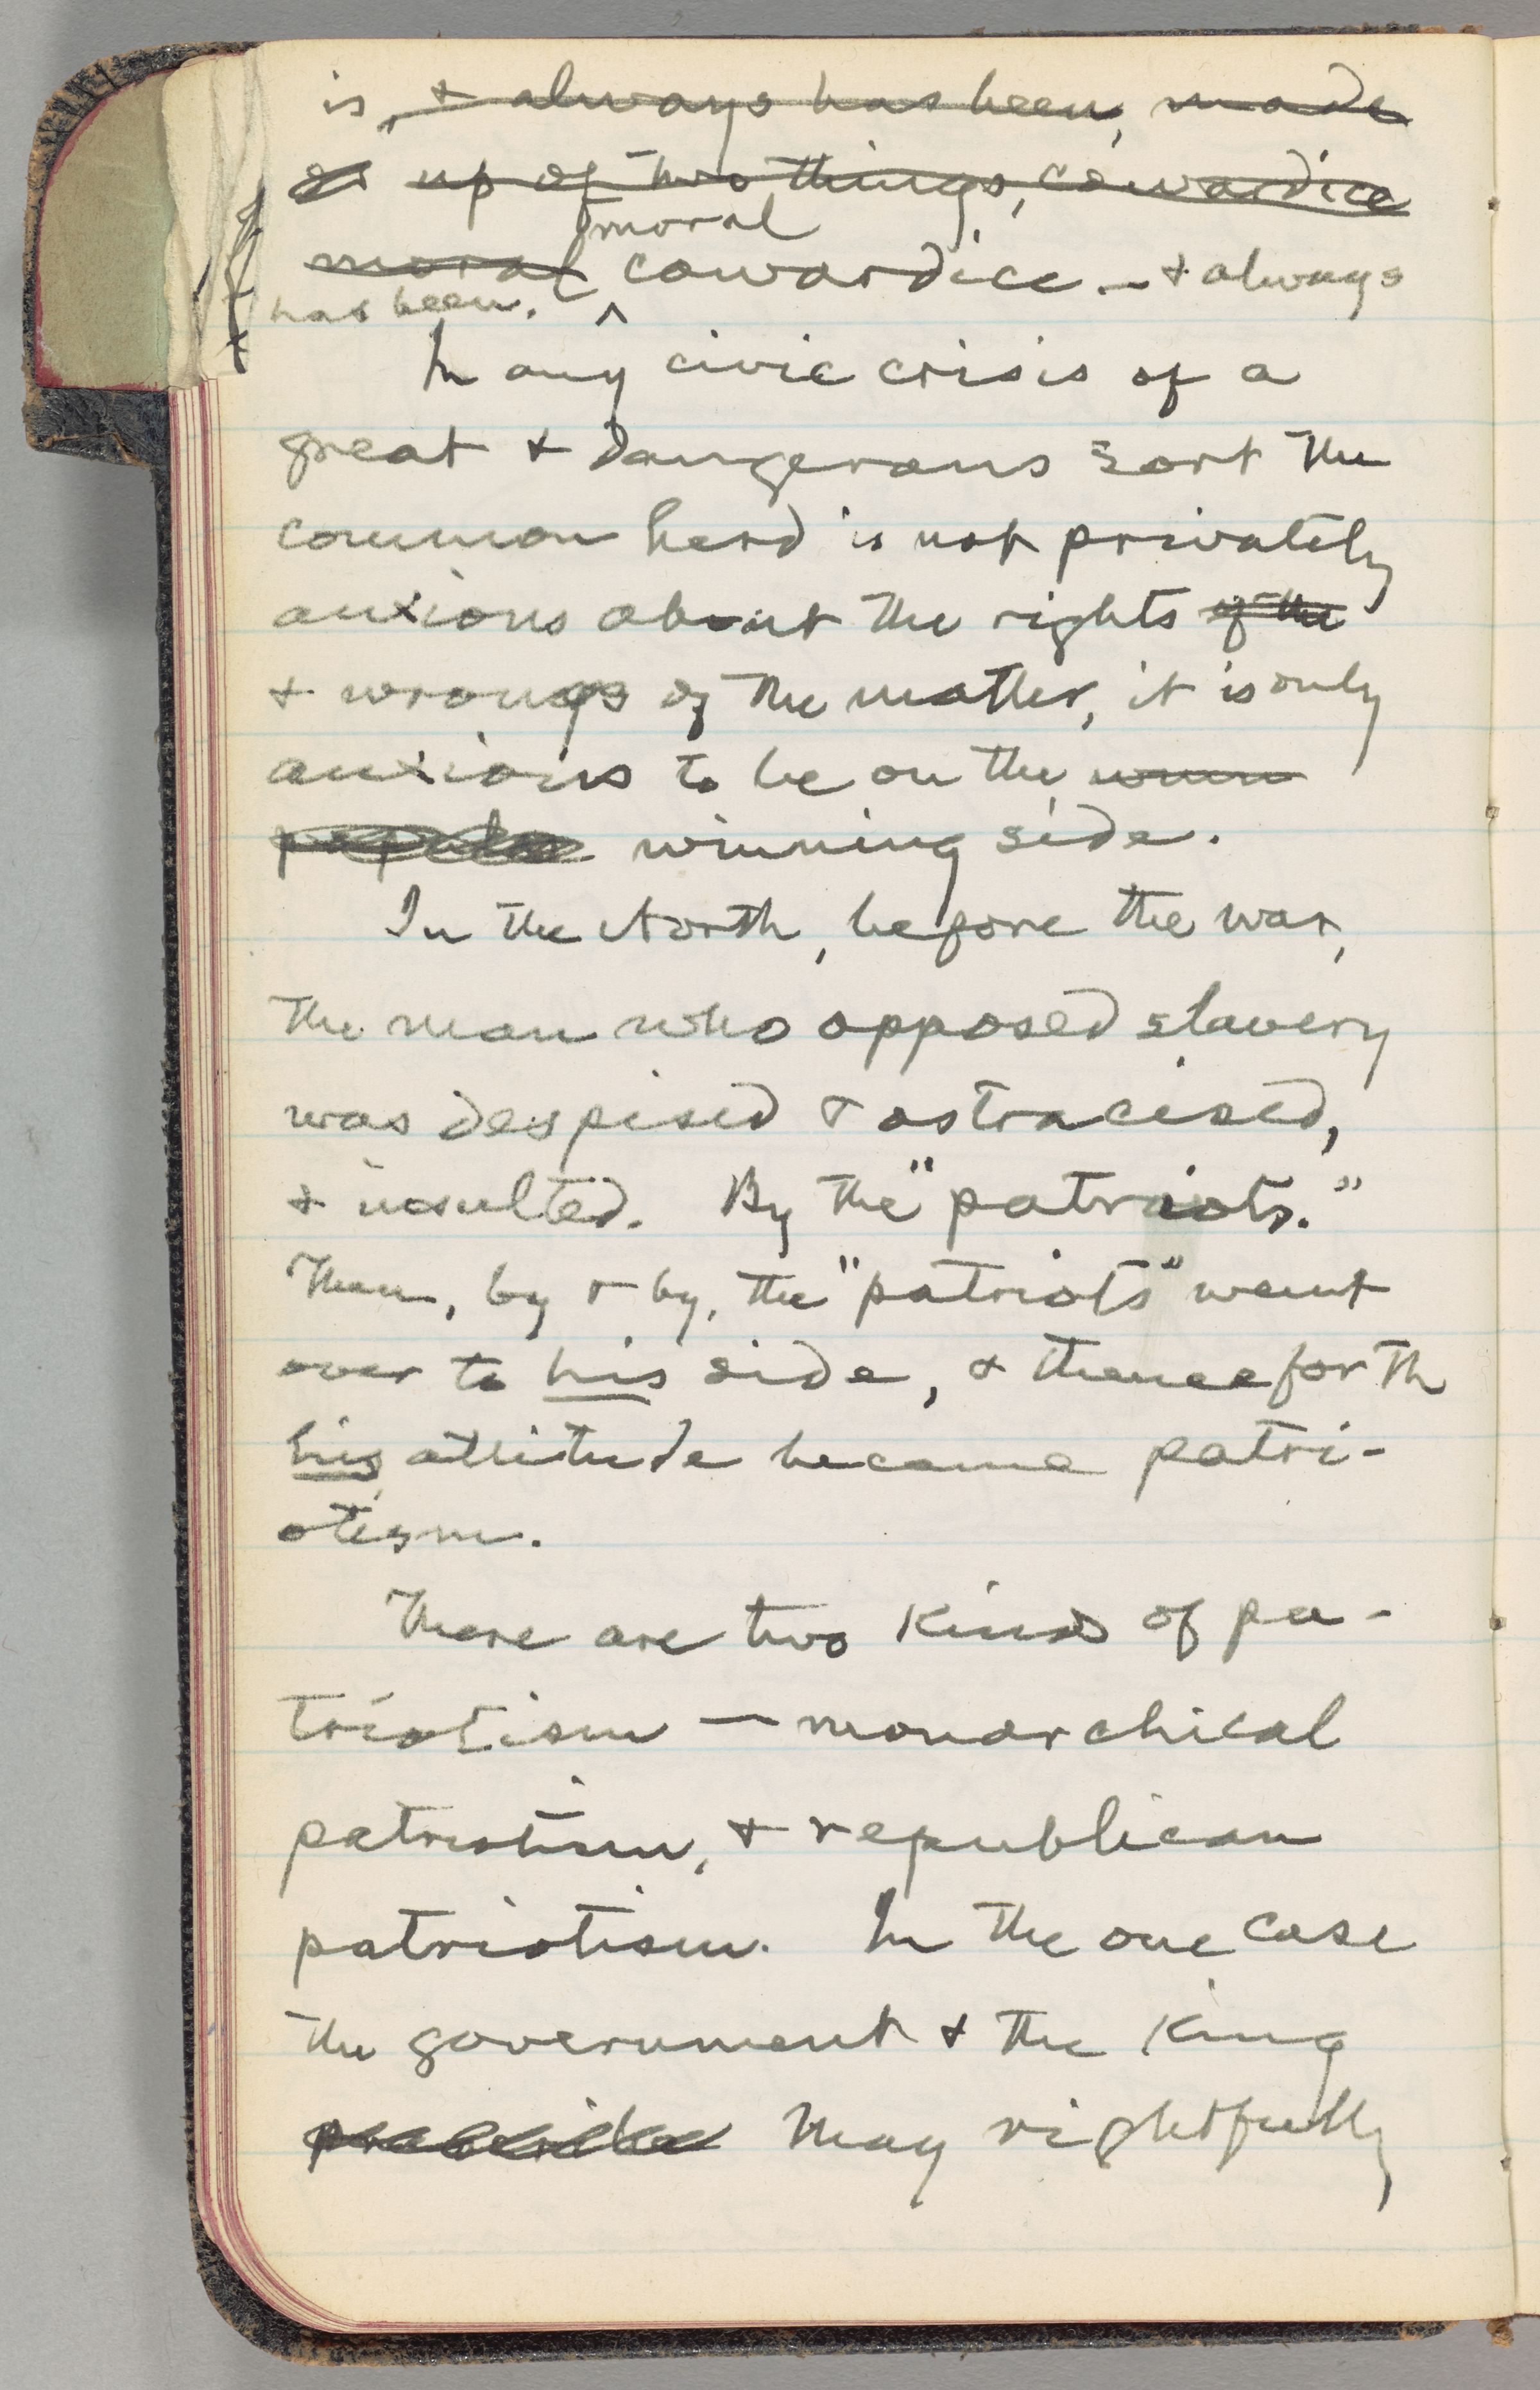 is, & always has been, made
up of two things, cowardice
moral
moral cowardice — & always
has been.
In any civic crisis of a
great & dangerous sort the
common herd is not privately
anxious about the rights of the
& wrongs of the matter, it is only
anxious to be on the winn
popular winning side.
In the North, before the war,
the man who opposed slavery
was despised & ostracised,
& insulted. By the "patriots."
Then, by & by, the "patriots" went
over to his side, & thenceforth
his attitude became patri-
otism.
There are two kinds of pa-
triotism — monarchical
patriotism, & republican
patriotism. In the one case
the government & the king
may rightfully